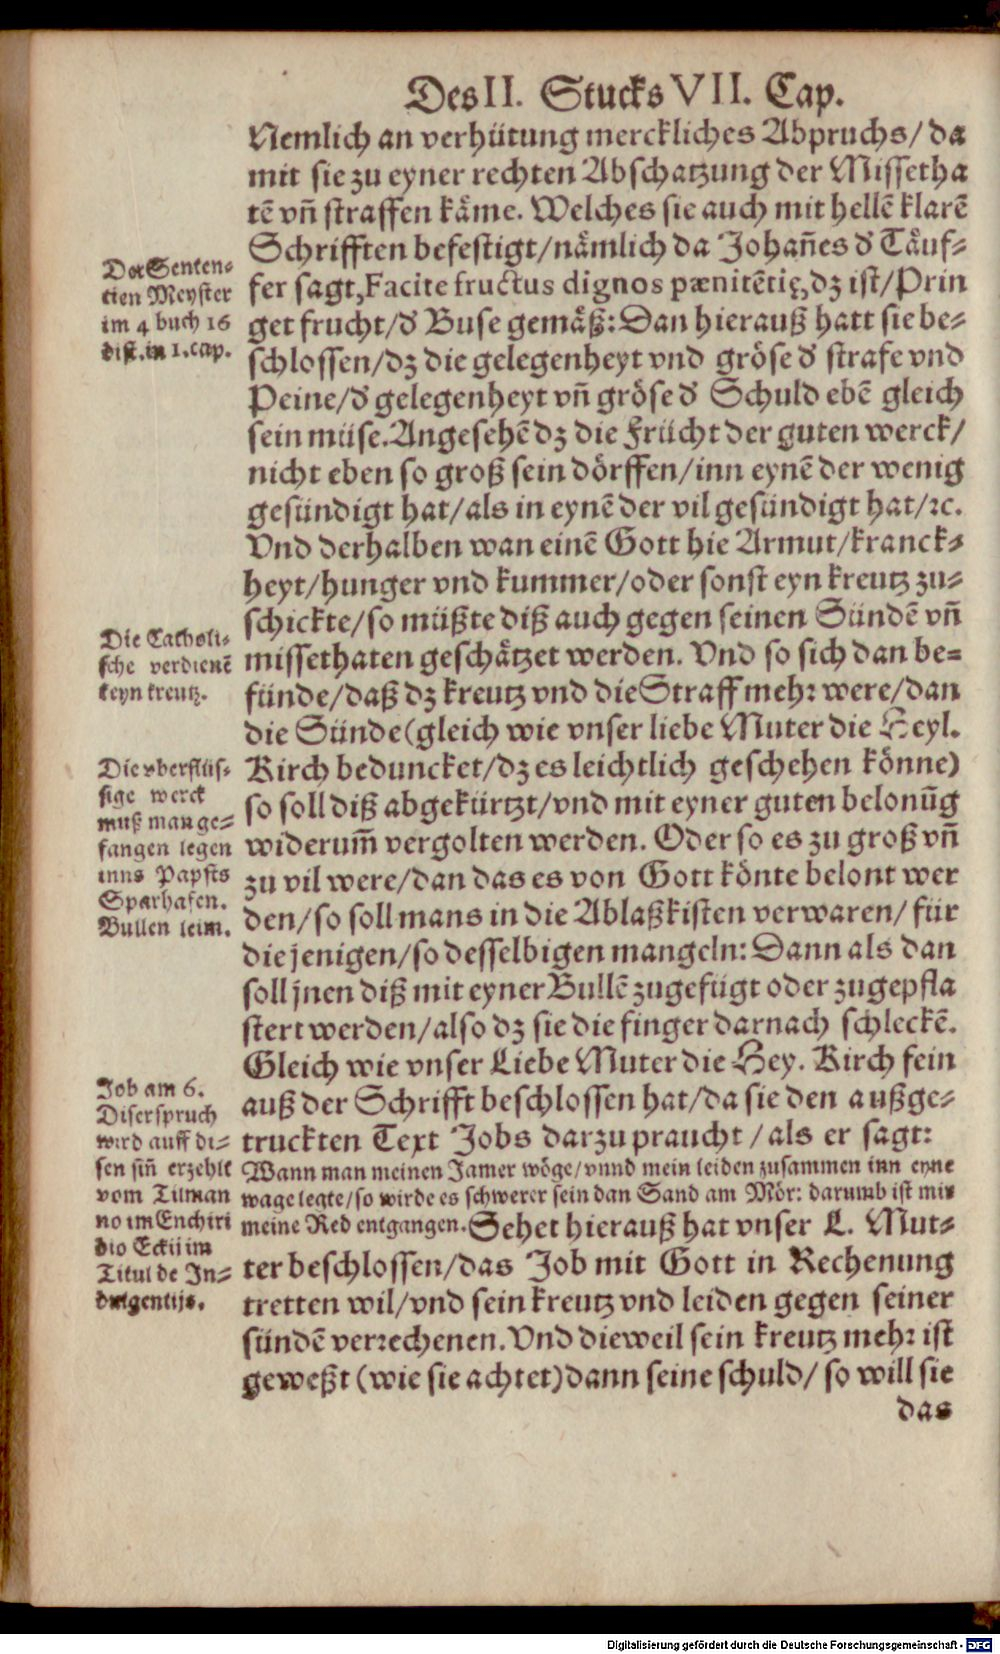 Des II. Stucks VII. Cap.
Nemlich an verhütung merckliches Abpruchs/ da
mit sie zu eyner rechten Abschatzung der Missetha
tē vn̄ straffen käme. Welches sie auch mit hellē klarē
Schrifften befestigt/nämlich da Johan̄es d' Täuf-
fer sagt, Facite fructus dignos pænitētię, dz ist/Prin
get frucht/d' Buse gemäß: Dan hierauß hatt sie be-
schlossen/dz die gelegenheyt vnd gröse d' strafe vnd
Peine/d' gelegenheyt vn̄ gröse d' Schuld ebē gleich
sein müse. Angesehē dz die Frücht der guten werck/
nicht eben so groß sein dörffen/inn eynē der wenig
gesündigt hat/als in eynē der vil gesündigt hat/ꝛc.
Vnd derhalben wan einē Gott hie Armut/kranck-
heyt/hunger vnd kummer/oder sonst eyn kreutz zu-
schickte/so müßte diß auch gegen seinen Sündē vn̄
missethaten geschätzet werden. Vnd so sich dan be-
fünde/daß dz kreutz vnd die Straff mehr were/dan
die Sünde (gleich wie vnser liebe Muter die Heyl.
Kirch beduncket/dz es leichtlich geschehen könne)
so soll diß abgekürtzt/vnd mit eyner guten belonūg
widerum̄ vergolten werden. Oder so es zu groß vn̄
zu vil were/dan das es von Gott könte belont wer
den/so soll mans in die Ablaßkisten verwaren/ für
die jenigen/so desselbigen mangeln: Dann als dan
soll jnen diß mit eyner Bullē zugefügt oder zugepfla
stert werden/also dz sie die finger darnach schleckē.
Gleich wie vnser Liebe Muter die Hey. Kirch fein
auß der Schrifft beschlossen hat/da sie den außge-
truckten Text Jobs darzu praucht/als er sagt:
Wann man meinen Jamer wöge/vnnd mein leiden zusammen inn eyne
wage legte/so wirde es schwerer sein dan Sand am Mör: darumb ist mir
meine Red entgangen. Sehet hierauß hat vnser L. Mut-
ter beschlossen/das Job mit Gott in Rechenung
tretten wil/vnd sein kreutz vnd leiden gegen seiner
sündē verrechenen. Vnd dieweil sein kreutz mehr ist
geweßt (wie sie achtet) dann seine schuld/ so will sie
das
Der Senten-
tien Meyster
im 4 buch 16
dist. in 1. cap.
Die Catholi-
sche verdienē
keyn kreutz.
Die vberflüs-
sige werck
muß man ge-
fangen legen
inns Papsts
Sparhafen.
Bullen leim.
Job am 6.
Diser spruch
wird auff di-
sen sin̄ erzehlt
vom Tilman
no im Enchiri
dio Eckij im
Titul de In-
dulgentijs.
Digitalisierung gefördert durch die Deutsche Forschungsgemeinschaft - DFG